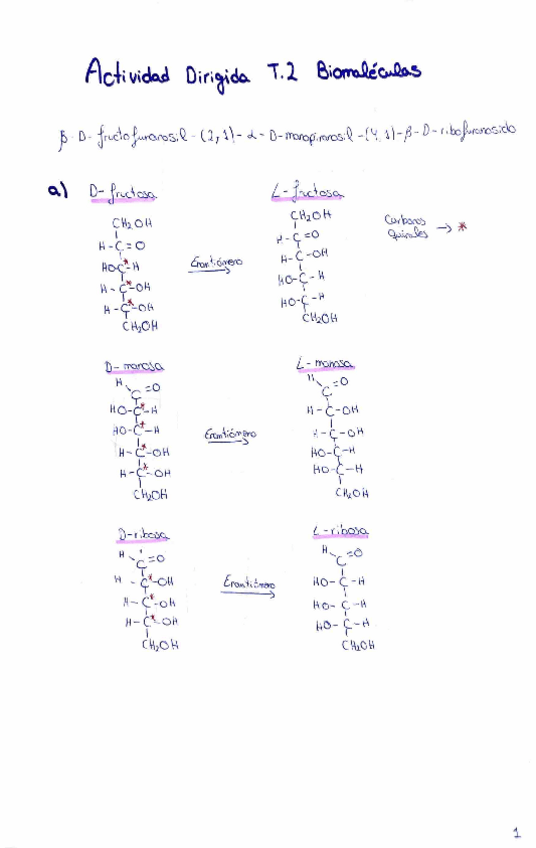 Actividad Dirigida T.2 Biomoléculas
β-D-fructofuranosil-(2,1)-α-D-manopiranosil-(4,1)-β-D-ribofuranosido
a) D-fructosa L-fructosa
Carbonos Quirales → *
CH2OH CH2OH
H-C=O H-C=O
HO-C*-H Enantiómero H-C-OH
H-C*-OH HO-C-H
H-C*-OH HO-C-H
CH2OH CH2OH
D-manosa L-manosa
H C=O H C=O
HO-C*-H H-C-OH
HO-C*-H Enantiómero H-C-OH
H-C*-OH HO-C-H
H-C*-OH HO-C-H
CH2OH CH2OH
D-ribosa L-ribosa
H C=O H C=O
H-C*-OH Enantiómero HO-C-H
H-C*-OH HO-C-H
H-C*-OH HO-C-H
CH2OH CH2OH
1